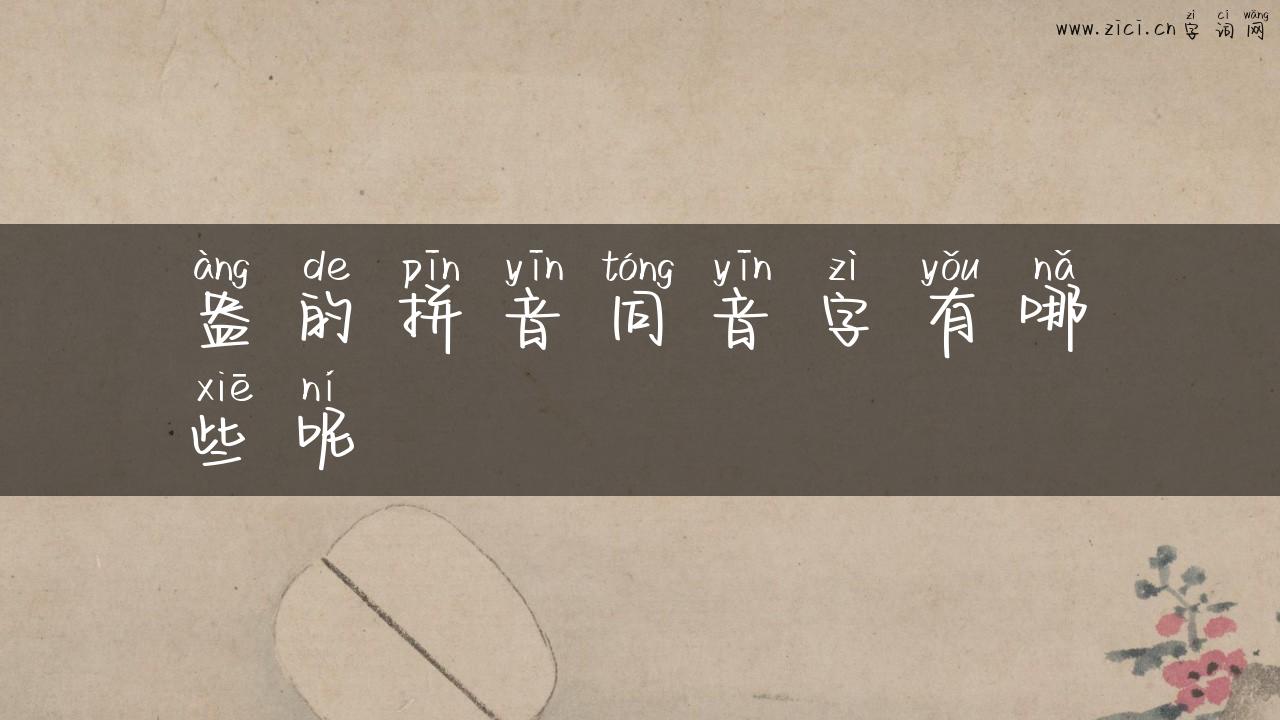 zì cí wǎng
www.zici.cn 字词网
àng de pīn yīn tóng yīn zì yǒu nǎ
盎的拼音同音字有哪
xiē ní
些呢